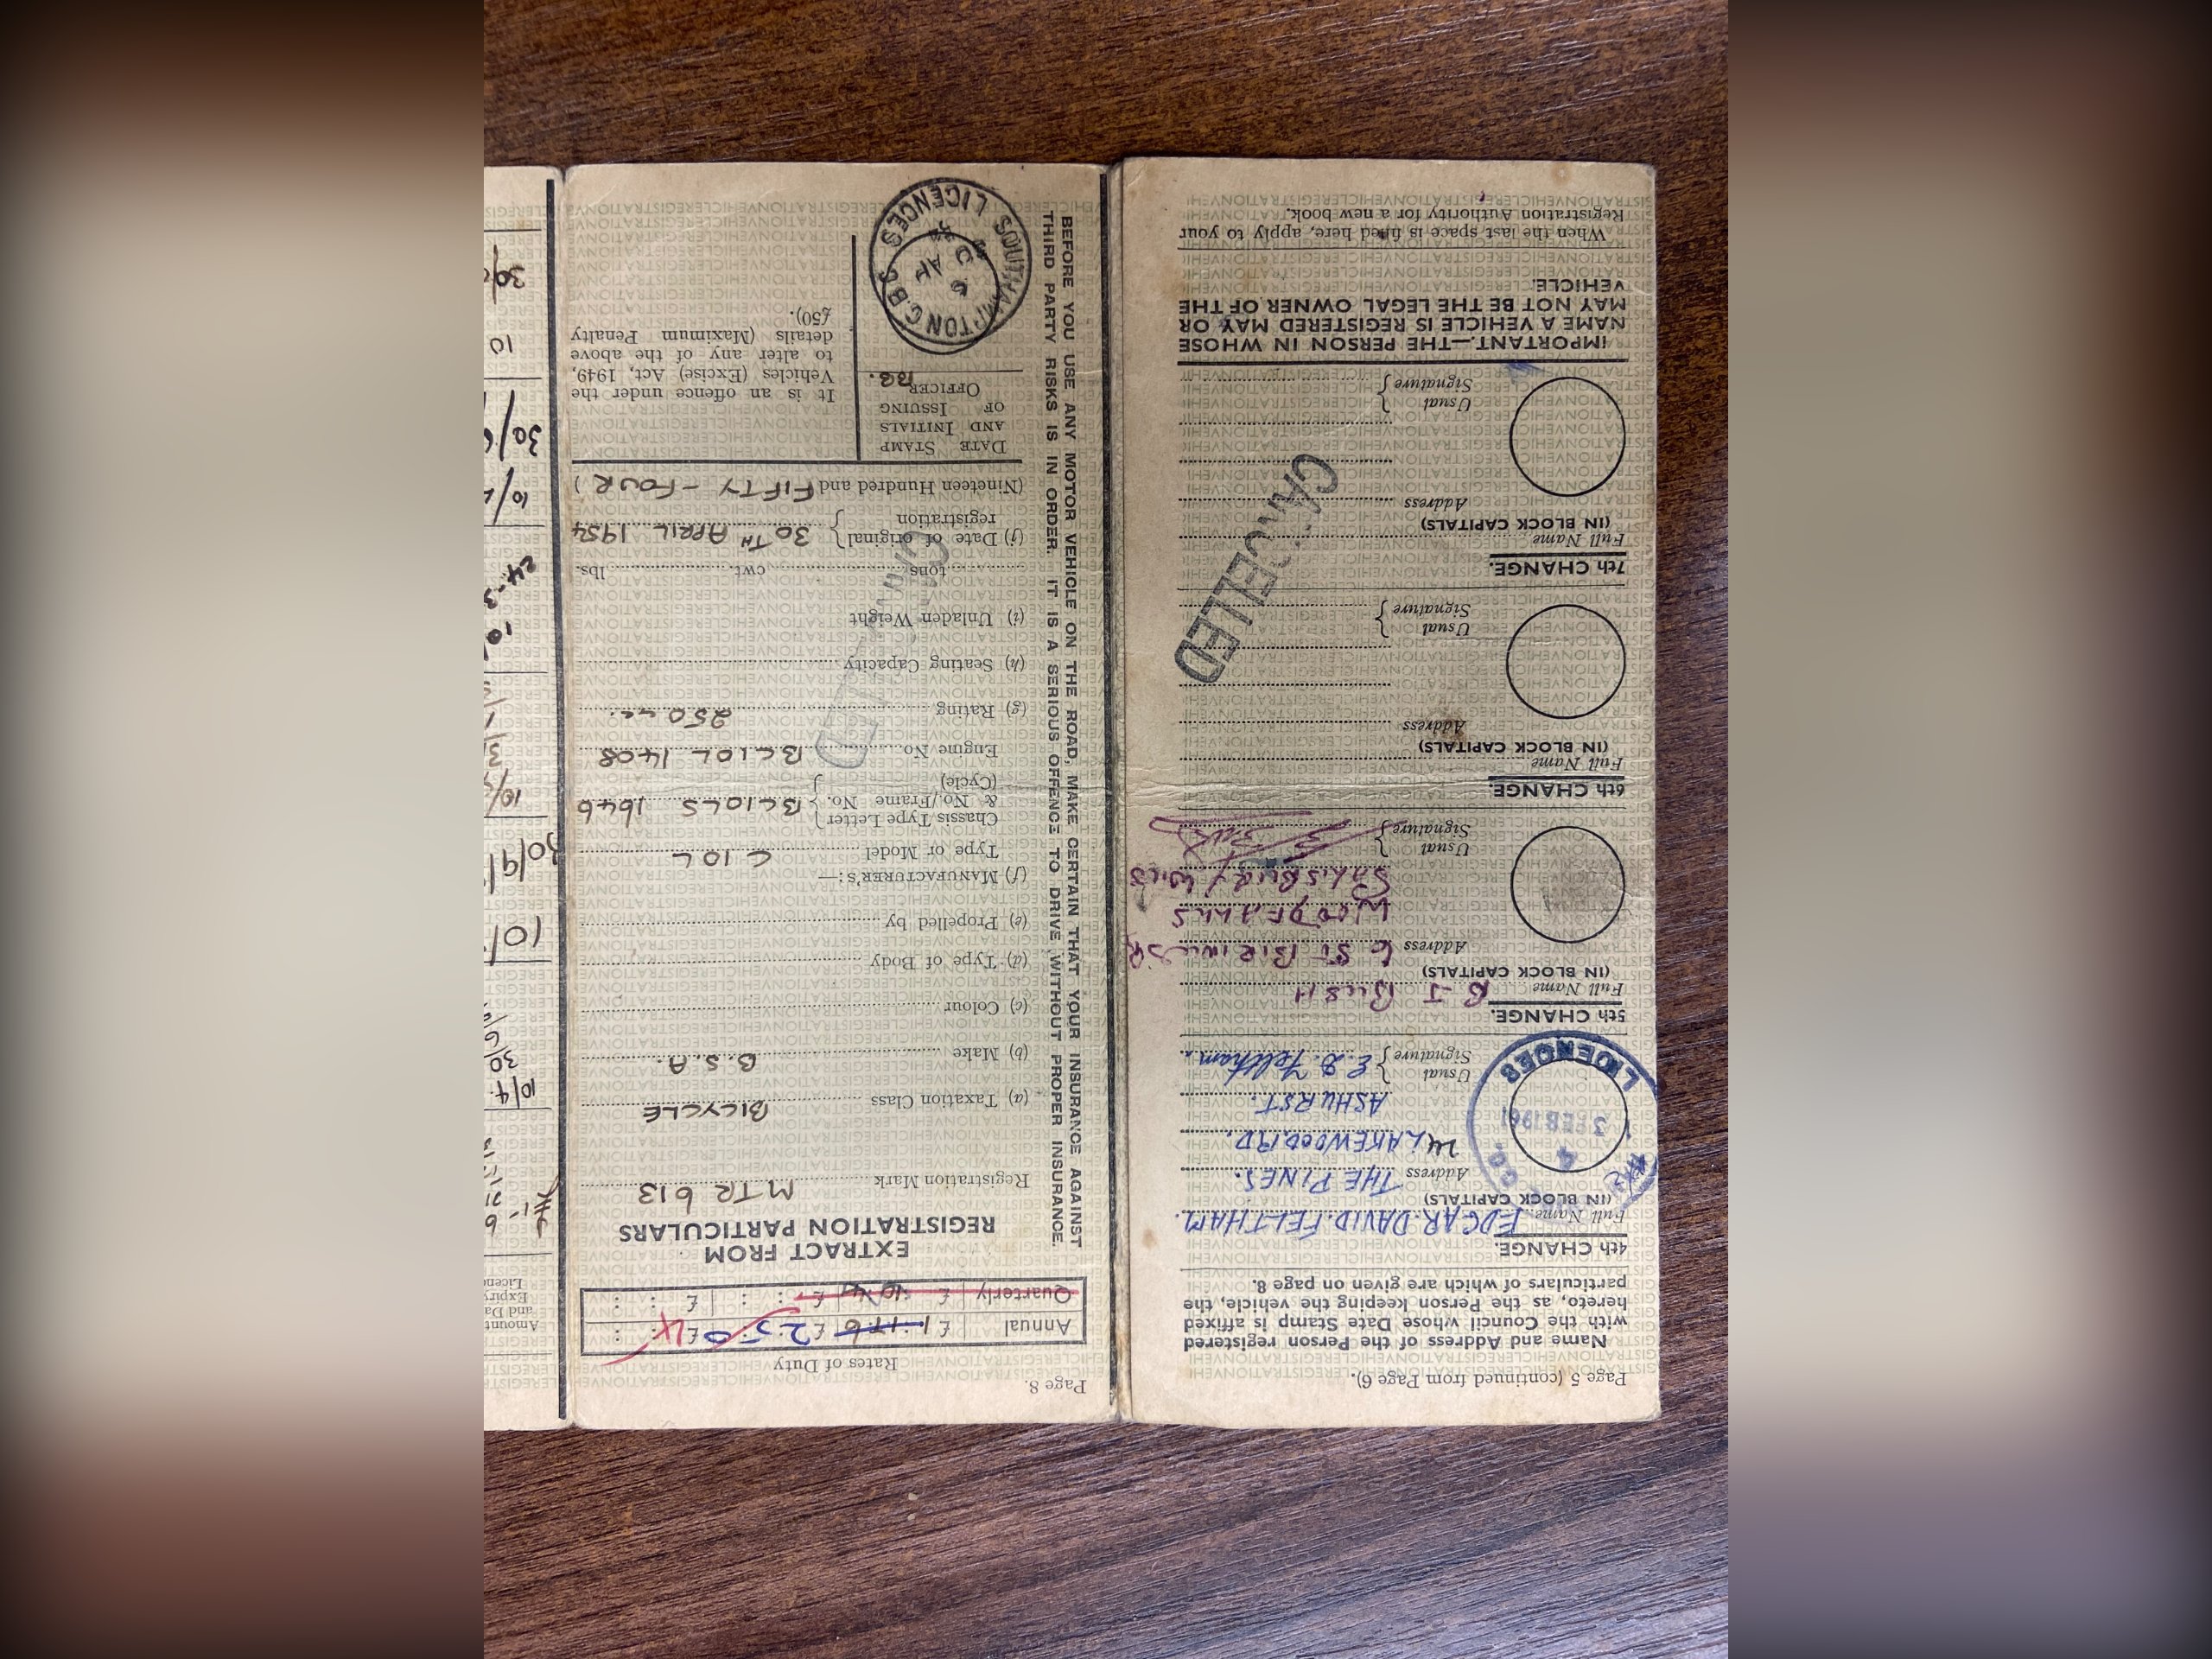 Page 5 (continued from Page 6).
Name and Address of the Person registered
with the Council whose Date Stamp is affixed
hereto, as the Person keeping the vehicle, the
particulars of which are given on page 8.
4th CHANGE.
Full Name EDGAR DAVID FELTHAM.
(IN BLOCK CAPITALS)
Address THE PINES.
24 LAKEWOOD RD.
ASHURST.
Usual
Signature } E.D. Feltham.
LICENCES
3 FEB 1961
4
5th CHANGE.
Full Name B J BUSH
(IN BLOCK CAPITALS)
Address 6 ST BIRINUS R
WOODFALLS
SALISBURY WILTS
Usual
Signature }
6th CHANGE.
Full Name
(IN BLOCK CAPITALS)
Address
Usual
Signature }
7th CHANGE.
Full Name
(IN BLOCK CAPITALS)
Address
Usual
Signature }
CANCELLED
IMPORTANT.—THE PERSON IN WHOSE
NAME A VEHICLE IS REGISTERED MAY OR
MAY NOT BE THE LEGAL OWNER OF THE
VEHICLE.
When the last space is filled here, apply to your
Registration Authority for a new book.
Page 8.
Rates of Duty
Annual £ 1:17:6 £ 2:5:0 £ 4 : :
Quarterly £ :10:4 £ : : £ : :
EXTRACT FROM
REGISTRATION PARTICULARS
Registration Mark MTR 613
(a) Taxation Class BICYCLE
(b) Make B.S.A.
(c) Colour
(d) Type of Body
(e) Propelled by
(f) MANUFACTURER'S:—
Type or Model C10L
Chassis Type Letter
& No./Frame No. } BC10LS 1646
(Cycle)
Engine No. BC10L 1408
(g) Rating 250 cc.
(h) Seating Capacity
(i) Unladen Weight
tons cwt. lbs.
(j) Date of original
registration } 30TH APRIL 1954
(Nineteen Hundred and FIFTY-FOUR)
DATE STAMP
AND INITIALS
OF ISSUING
OFFICER
SOUTHAMPTON C.B.C.
LICENCES
It is an offence under the
Vehicles (Excise) Act, 1949,
to alter any of the above
details (Maximum Penalty
£50).
BEFORE YOU USE ANY MOTOR VEHICLE ON THE ROAD, MAKE CERTAIN THAT YOUR INSURANCE AGAINST
THIRD PARTY RISKS IS IN ORDER. IT IS A SERIOUS OFFENCE TO DRIVE WITHOUT PROPER INSURANCE.
Amount
and Da
Expiry
Licen